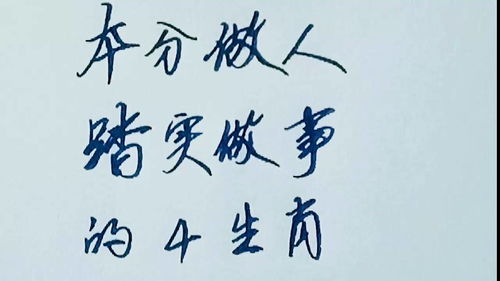 本分做人
踏实做事
的4生肖